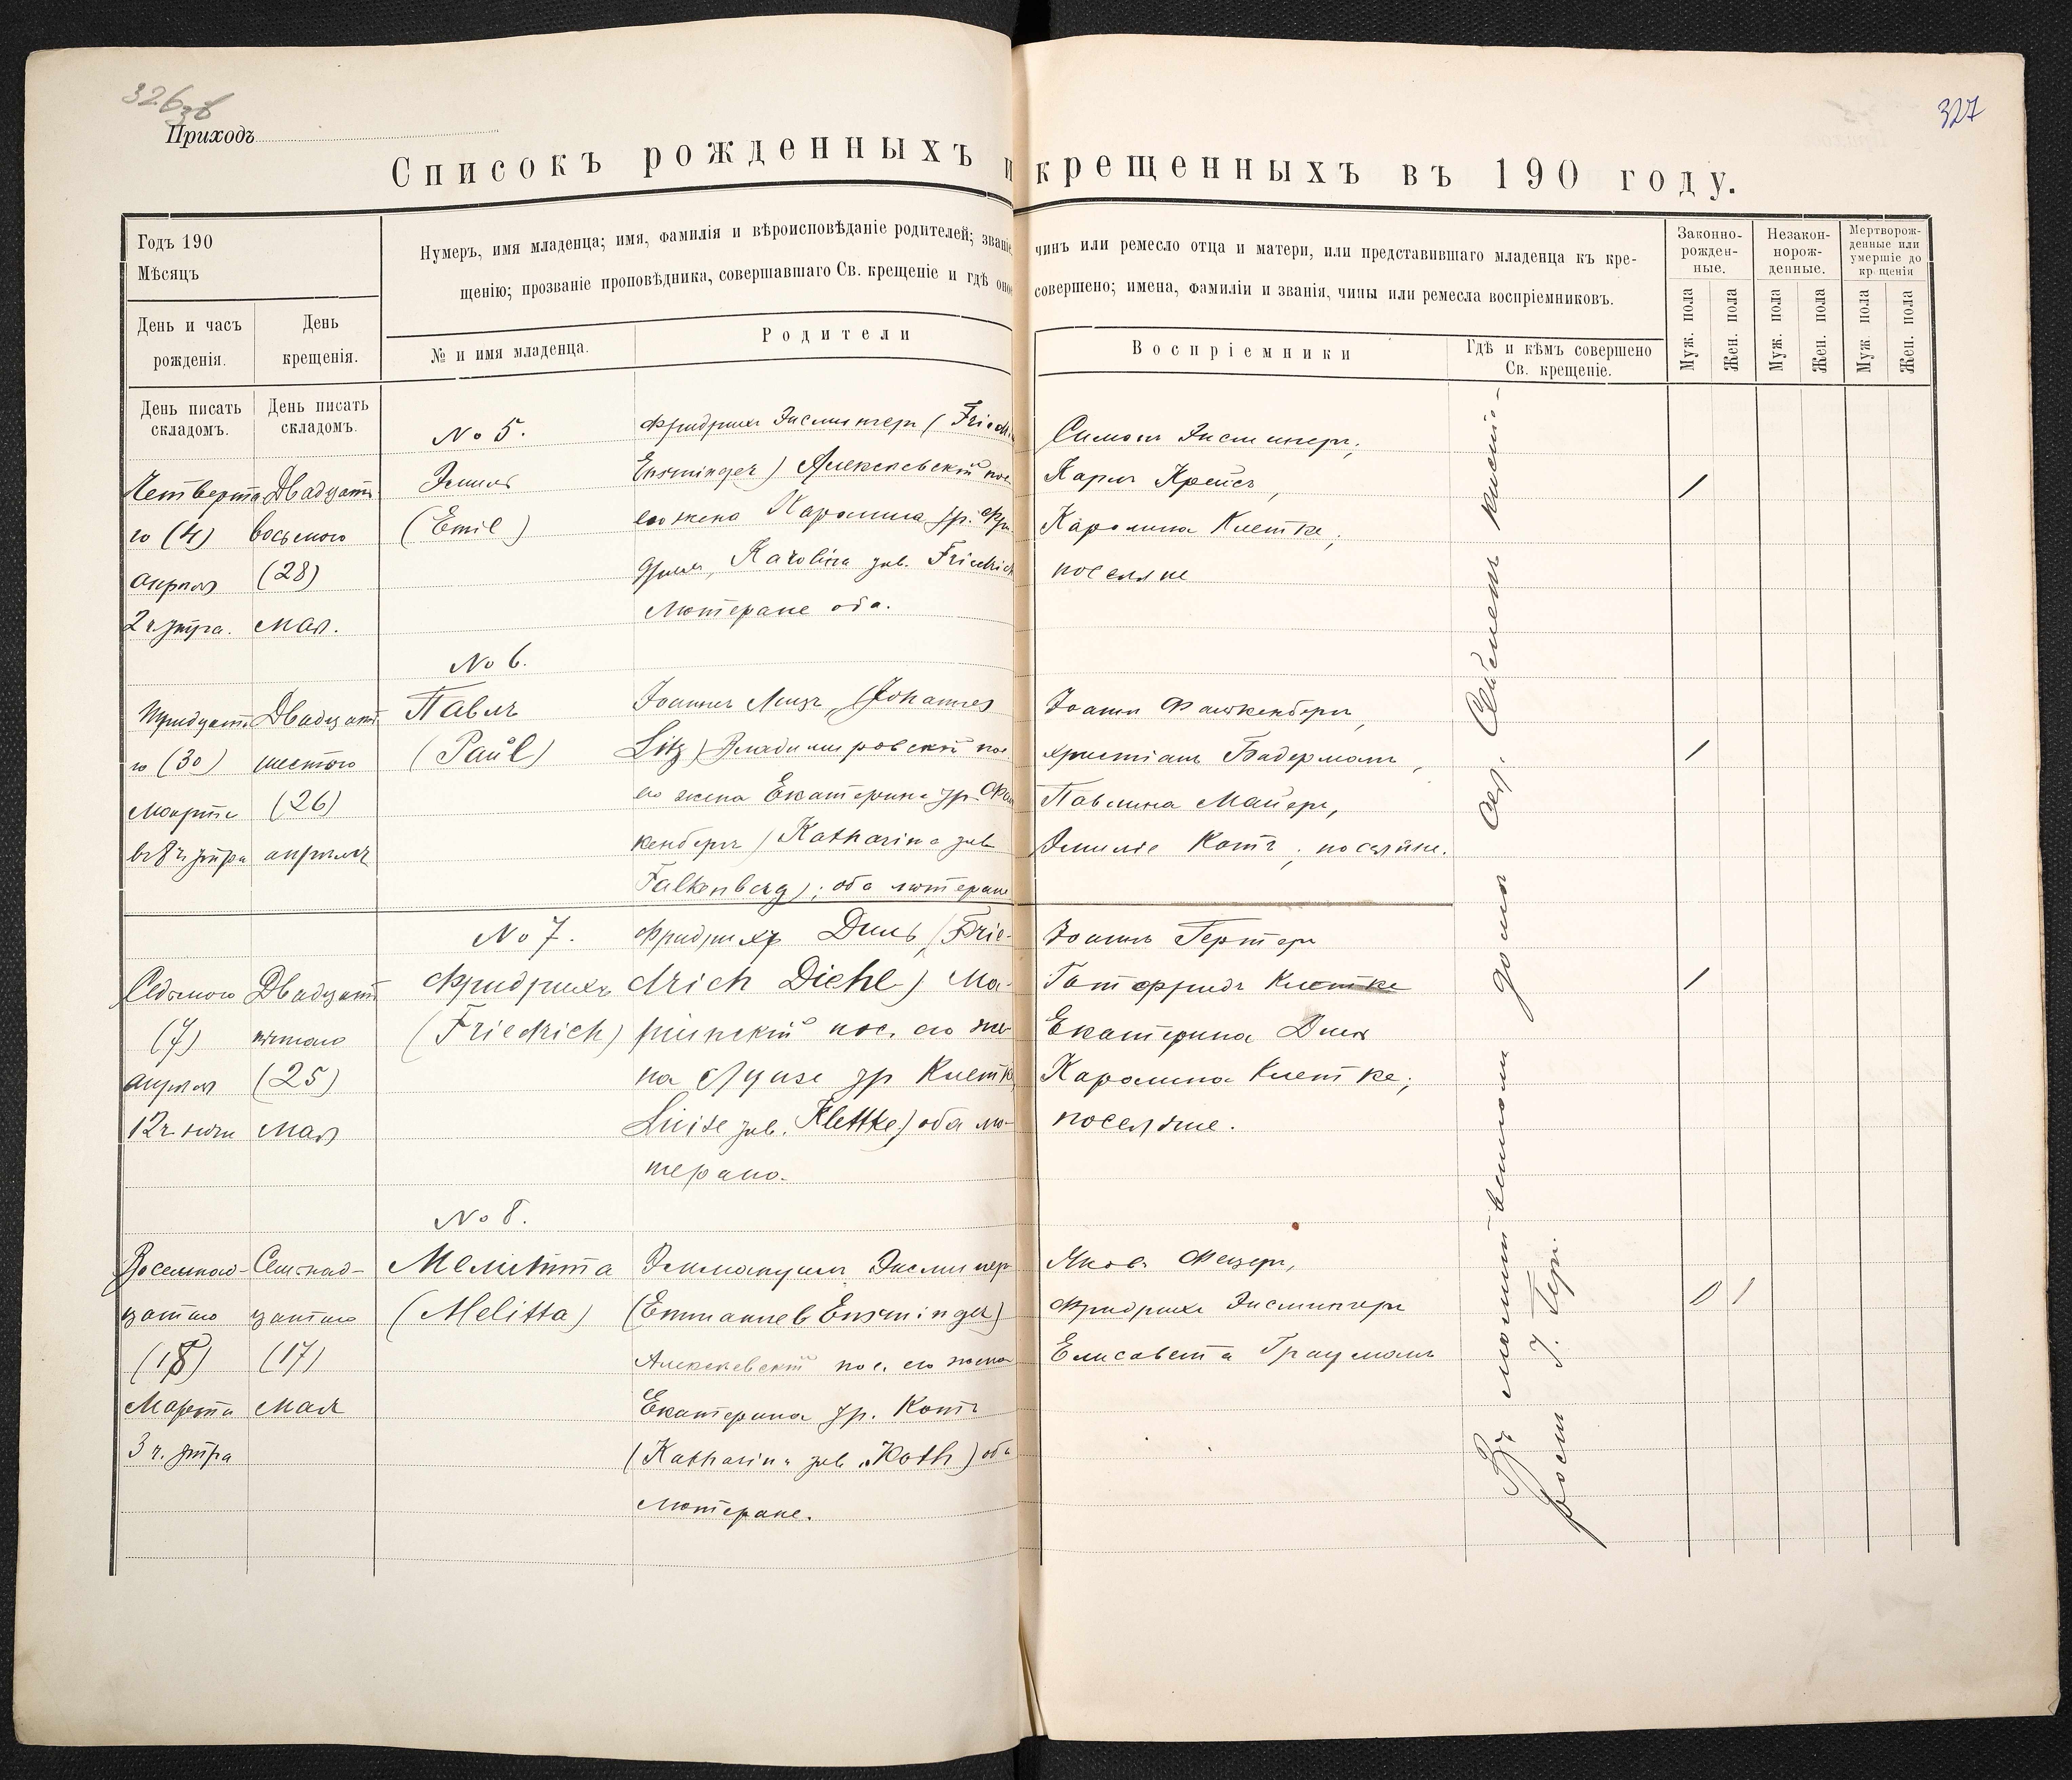 326зв
327
Приходъ
Списокъ рожденныхъ и крещенныхъ въ 190 году.
Годъ 190
Мѣсяцъ
День и часъ рожденія.
День крещенія.
Нумеръ, имя младенца; имя, фамилія и вѣроисповѣданіе родителей; званіе, чинъ или ремесло отца и матери, или представившаго младенца къ кре-
щенію; прозваніе проповѣдника, совершавшаго Св. крещеніе и гдѣ оное совершено; имена, фамиліи и званія, чины или ремесла воспріемниковъ.
№ и имя младенца.
Родители
Воспріемники
Гдѣ и кѣмъ совершено
Св. крещеніе.
Законно-
рожден-
ные.
Незакон-
норож-
денные.
Мертворож-
денные или
умершіе до
крещенія
Муж. пола
Жен. пола
Муж. пола
Жен. пола
Муж. пола
Жен. пола
День писать
складомъ.
День писать
складомъ.
Четверта
го (4)
апрѣля
2 ч. утра.
Двадцать
восьмого
(28)
мая.
№ 5.
Эмиль
(Emil)
Фридрихъ Энсмингеръ (Friedr.
Ensminger) Алексѣевскій пос.
его жена Каролина ур. Фри
дрихъ, Karolina ув. Friedrich
Лютеране оба.
Симонъ Энсмингеръ,
Карлъ Крейсъ,
Каролина Клетке,
поселяне
/
Тридцата
го (30)
Марта
въ 8 ч утра
Двадцать
шестого
(26)
апрѣля
№ 6.
Павлъ
(Paul)
Іоаннъ Лицъ, (Johannes
Litz) Владимировскій пос.
его жена Екатерина ур. Фал
кенбергъ (Katharina ув
Falkenberg); оба лютеране
Іоаннъ Фалкенбергъ,
Христіанъ Бадерманъ,
Павлина Майеръ,
Эмиліе Котъ; поселяне.
/
Седьмого
(7)
апрѣля
12 ч ночи
Двадцать
пятаго
(25)
мая
№ 7.
Фридрихъ
(Friedrich)
Фридрихъ Диль, (Frie-
drich Diehl) Ма-
ріинскій пос. его же
на Луизе ур Клетке
Luise ув. Klettke) оба лю-
теране.
Іоаннъ Гертеръ
Готфридъ Клетке
Екатерина Диль
Каролина Клетке;
поселяне.
/
Восемнад-
цатаго
(18)
Марта
3 ч. утра
Семнад-
цатаго
(17)
мая
№ 8.
Мелитта
(Melitta)
Эммануилъ Энсмингеръ
(Emmanuel Ensminger)
Алексѣевскій пос. его жена
Екатерина ур. Котъ
(Katharina ув. Koth) оба
лютеране.
Яковъ Фецеръ,
Фридрихъ Энсмингеръ
Елисавета Грауманъ
/
Въ молитвенномъ домѣ